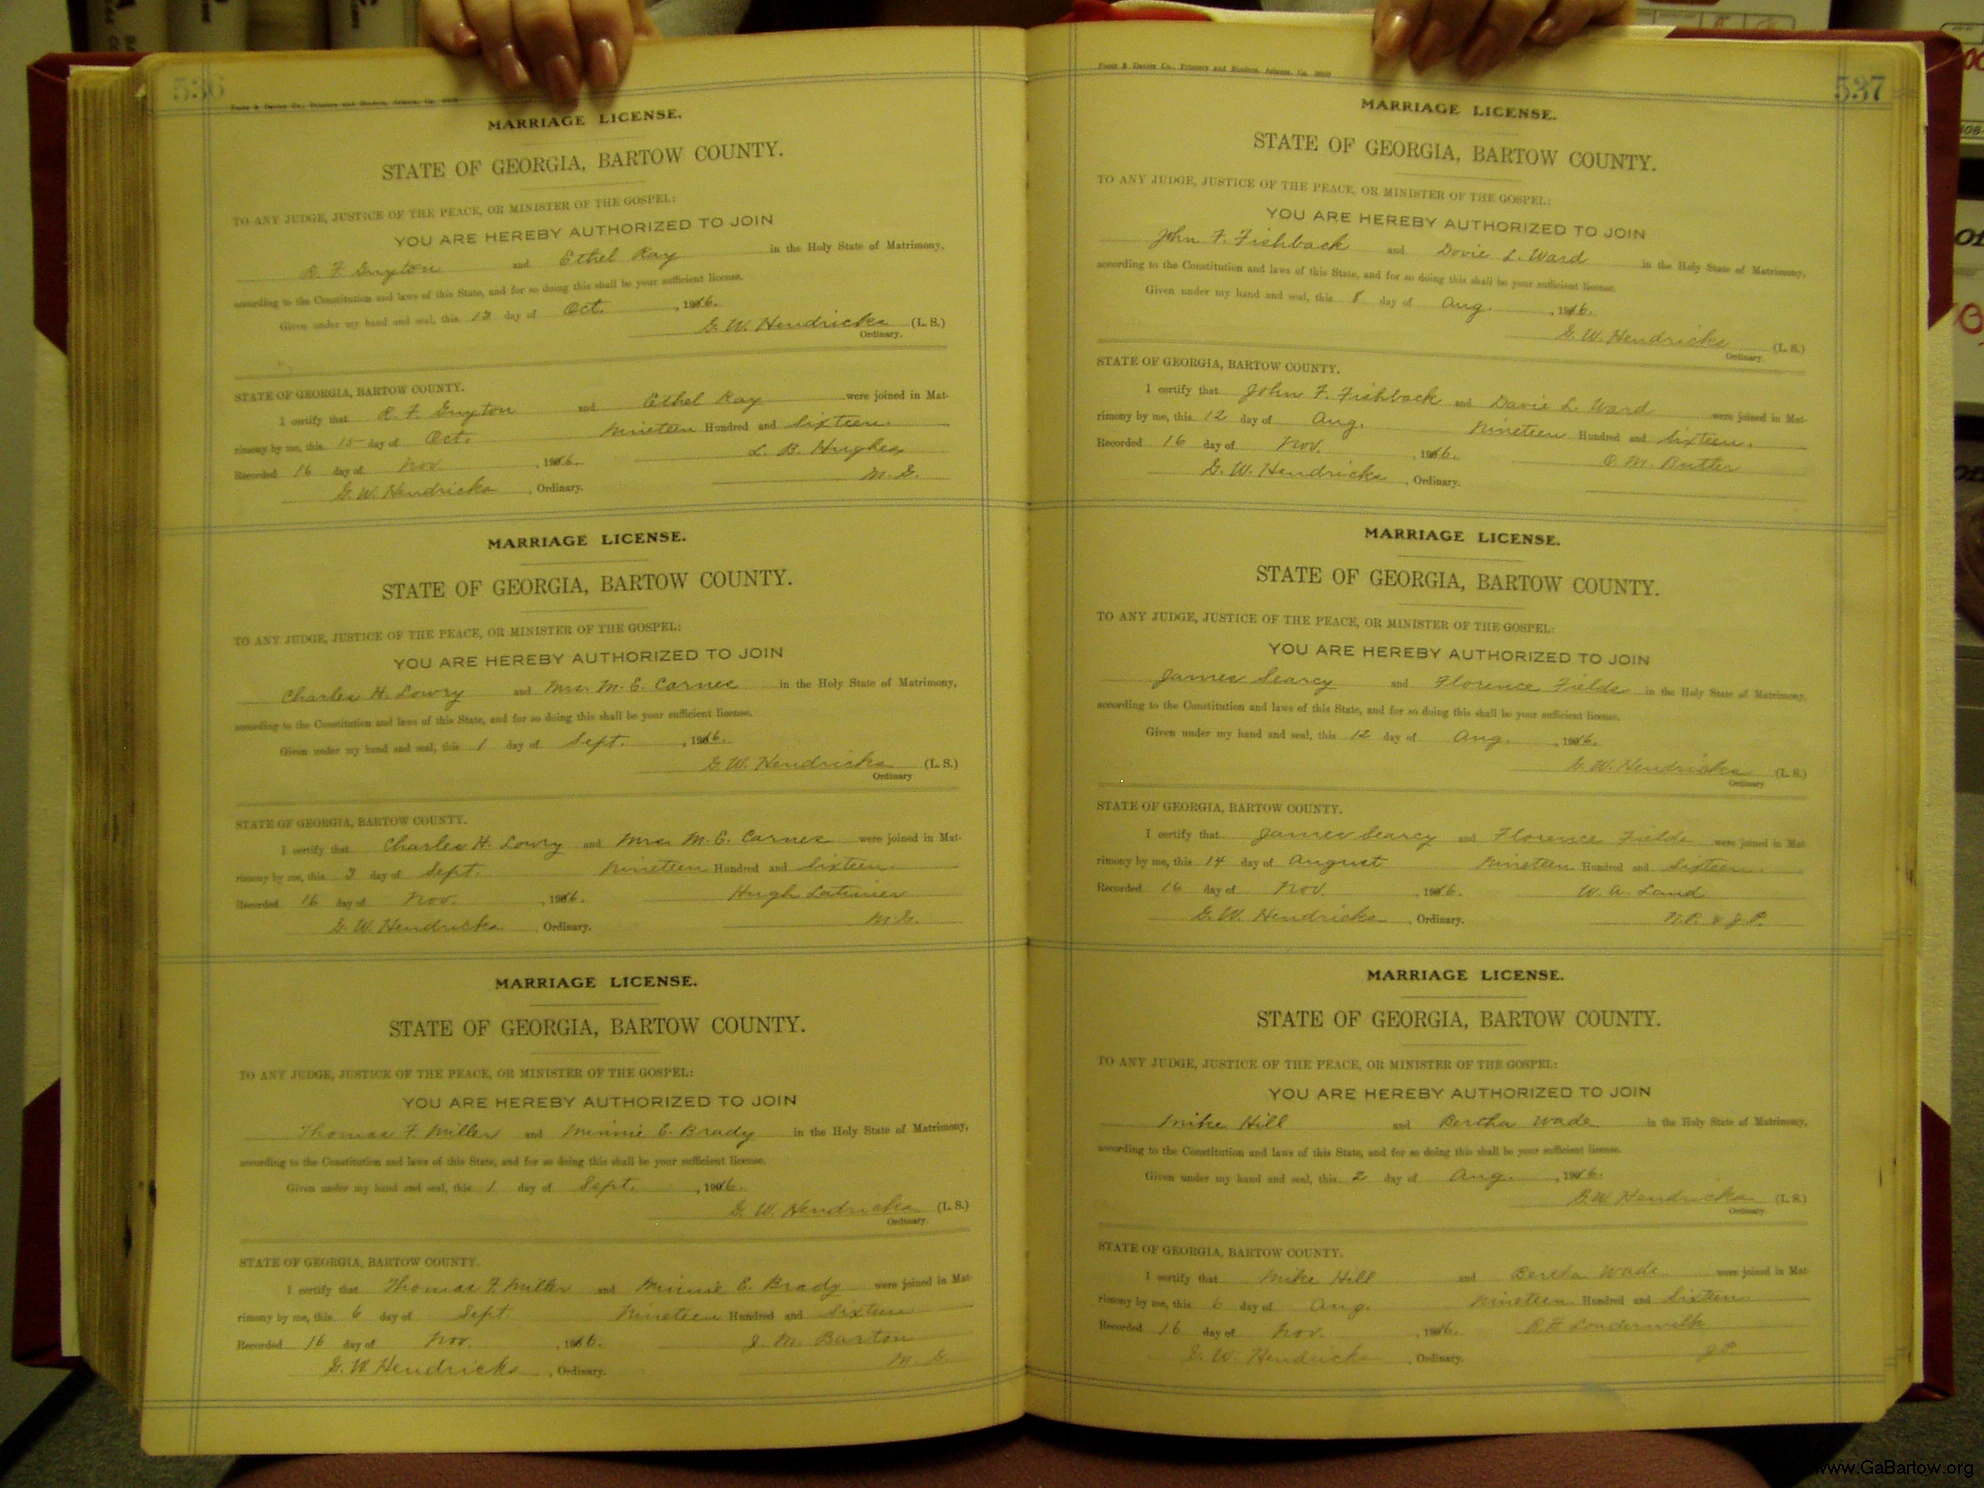 536
MARRIAGE LICENSE.
STATE OF GEORGIA, BARTOW COUNTY.
TO ANY JUDGE, JUSTICE OF THE PEACE, OR MINISTER OF THE GOSPEL:
YOU ARE HEREBY AUTHORIZED TO JOIN
R. F. Guyton and Ethel Ray in the Holy State of Matrimony,
according to the Constitution and laws of this State, and for so doing this shall be your sufficient license.
Given under my hand and seal, this 13 day of Oct. , 1916.
G. W. Hendricks (L. S.)
Ordinary.
STATE OF GEORGIA, BARTOW COUNTY.
I certify that R. F. Guyton and Ethel Ray were joined in Mat-
rimony by me, this 15 day of Oct. Nineteen Hundred and Sixteen.
Recorded 16 day of Nov. , 1916. L. B. Hughes
G. W. Hendricks , Ordinary. M. G.
MARRIAGE LICENSE.
STATE OF GEORGIA, BARTOW COUNTY.
TO ANY JUDGE, JUSTICE OF THE PEACE, OR MINISTER OF THE GOSPEL:
YOU ARE HEREBY AUTHORIZED TO JOIN
Charles H. Lowry and Mrs. M. E. Carnes in the Holy State of Matrimony,
according to the Constitution and laws of this State, and for so doing this shall be your sufficient license.
Given under my hand and seal, this 1 day of Sept. , 1916.
G. W. Hendricks (L. S.)
Ordinary
STATE OF GEORGIA, BARTOW COUNTY.
I certify that Charles H. Lowry and Mrs. M. E. Carnes were joined in Mat-
rimony by me, this 3 day of Sept. Nineteen Hundred and Sixteen.
Recorded 16 day of Nov. , 1916. Hugh Latimer
G. W. Hendricks , Ordinary. M. G.
MARRIAGE LICENSE.
STATE OF GEORGIA, BARTOW COUNTY.
TO ANY JUDGE, JUSTICE OF THE PEACE, OR MINISTER OF THE GOSPEL:
YOU ARE HEREBY AUTHORIZED TO JOIN
Thomas F. Miller and Minnie E. Brady in the Holy State of Matrimony,
according to the Constitution and laws of this State, and for so doing this shall be your sufficient license.
Given under my hand and seal, this 1 day of Sept. , 1916.
G. W. Hendricks (L. S.)
Ordinary.
STATE OF GEORGIA, BARTOW COUNTY.
I certify that Thomas F. Miller and Minnie E. Brady were joined in Mat-
rimony by me, this 6 day of Sept Nineteen Hundred and Sixteen
Recorded 16 day of Nov. , 1916. J. M. Barton
G. W. Hendricks , Ordinary. M. G.
537
MARRIAGE LICENSE.
STATE OF GEORGIA, BARTOW COUNTY.
TO ANY JUDGE, JUSTICE OF THE PEACE, OR MINISTER OF THE GOSPEL:
YOU ARE HEREBY AUTHORIZED TO JOIN
John F. Fishback and Dovie L. Ward in the Holy State of Matrimony,
according to the Constitution and laws of this State, and for so doing this shall be your sufficient license.
Given under my hand and seal, this 8 day of Aug. , 1916.
G. W. Hendricks (L. S.)
Ordinary.
STATE OF GEORGIA, BARTOW COUNTY.
I certify that John F. Fishback and Davie L. Ward were joined in Mat-
rimony by me, this 12 day of Aug. Nineteen Hundred and Sixteen.
Recorded 16 day of Nov. , 1916. O. M. Butler
G. W. Hendricks , Ordinary.
MARRIAGE LICENSE.
STATE OF GEORGIA, BARTOW COUNTY.
TO ANY JUDGE, JUSTICE OF THE PEACE, OR MINISTER OF THE GOSPEL:
YOU ARE HEREBY AUTHORIZED TO JOIN
James Searcy and Florence Fields in the Holy State of Matrimony,
according to the Constitution and laws of this State, and for so doing this shall be your sufficient license.
Given under my hand and seal, this 12 day of Aug. , 1916.
G. W. Hendricks (L. S.)
Ordinary
STATE OF GEORGIA, BARTOW COUNTY.
I certify that James Searcy and Florence Fields were joined in Mat-
rimony by me, this 14 day of August Nineteen Hundred and Sixteen.
Recorded 16 day of Nov , 1916. W. A. Land
G. W. Hendricks , Ordinary. N.P. & J.P.
MARRIAGE LICENSE.
STATE OF GEORGIA, BARTOW COUNTY.
TO ANY JUDGE, JUSTICE OF THE PEACE, OR MINISTER OF THE GOSPEL:
YOU ARE HEREBY AUTHORIZED TO JOIN
Mike Hill and Bertha Wade in the Holy State of Matrimony,
according to the Constitution and laws of this State, and for so doing this shall be your sufficient license.
Given under my hand and seal, this 2 day of Aug. , 1916.
G. W. Hendricks (L. S.)
Ordinary.
STATE OF GEORGIA, BARTOW COUNTY.
I certify that Mike Hill and Bertha Wade were joined in Mat-
rimony by me, this 6 day of Aug. Nineteen Hundred and Sixteen
Recorded 16 day of Nov. , 1916. R. H. Louderwelk
G. W. Hendricks , Ordinary. JP
www.GaBartow.org